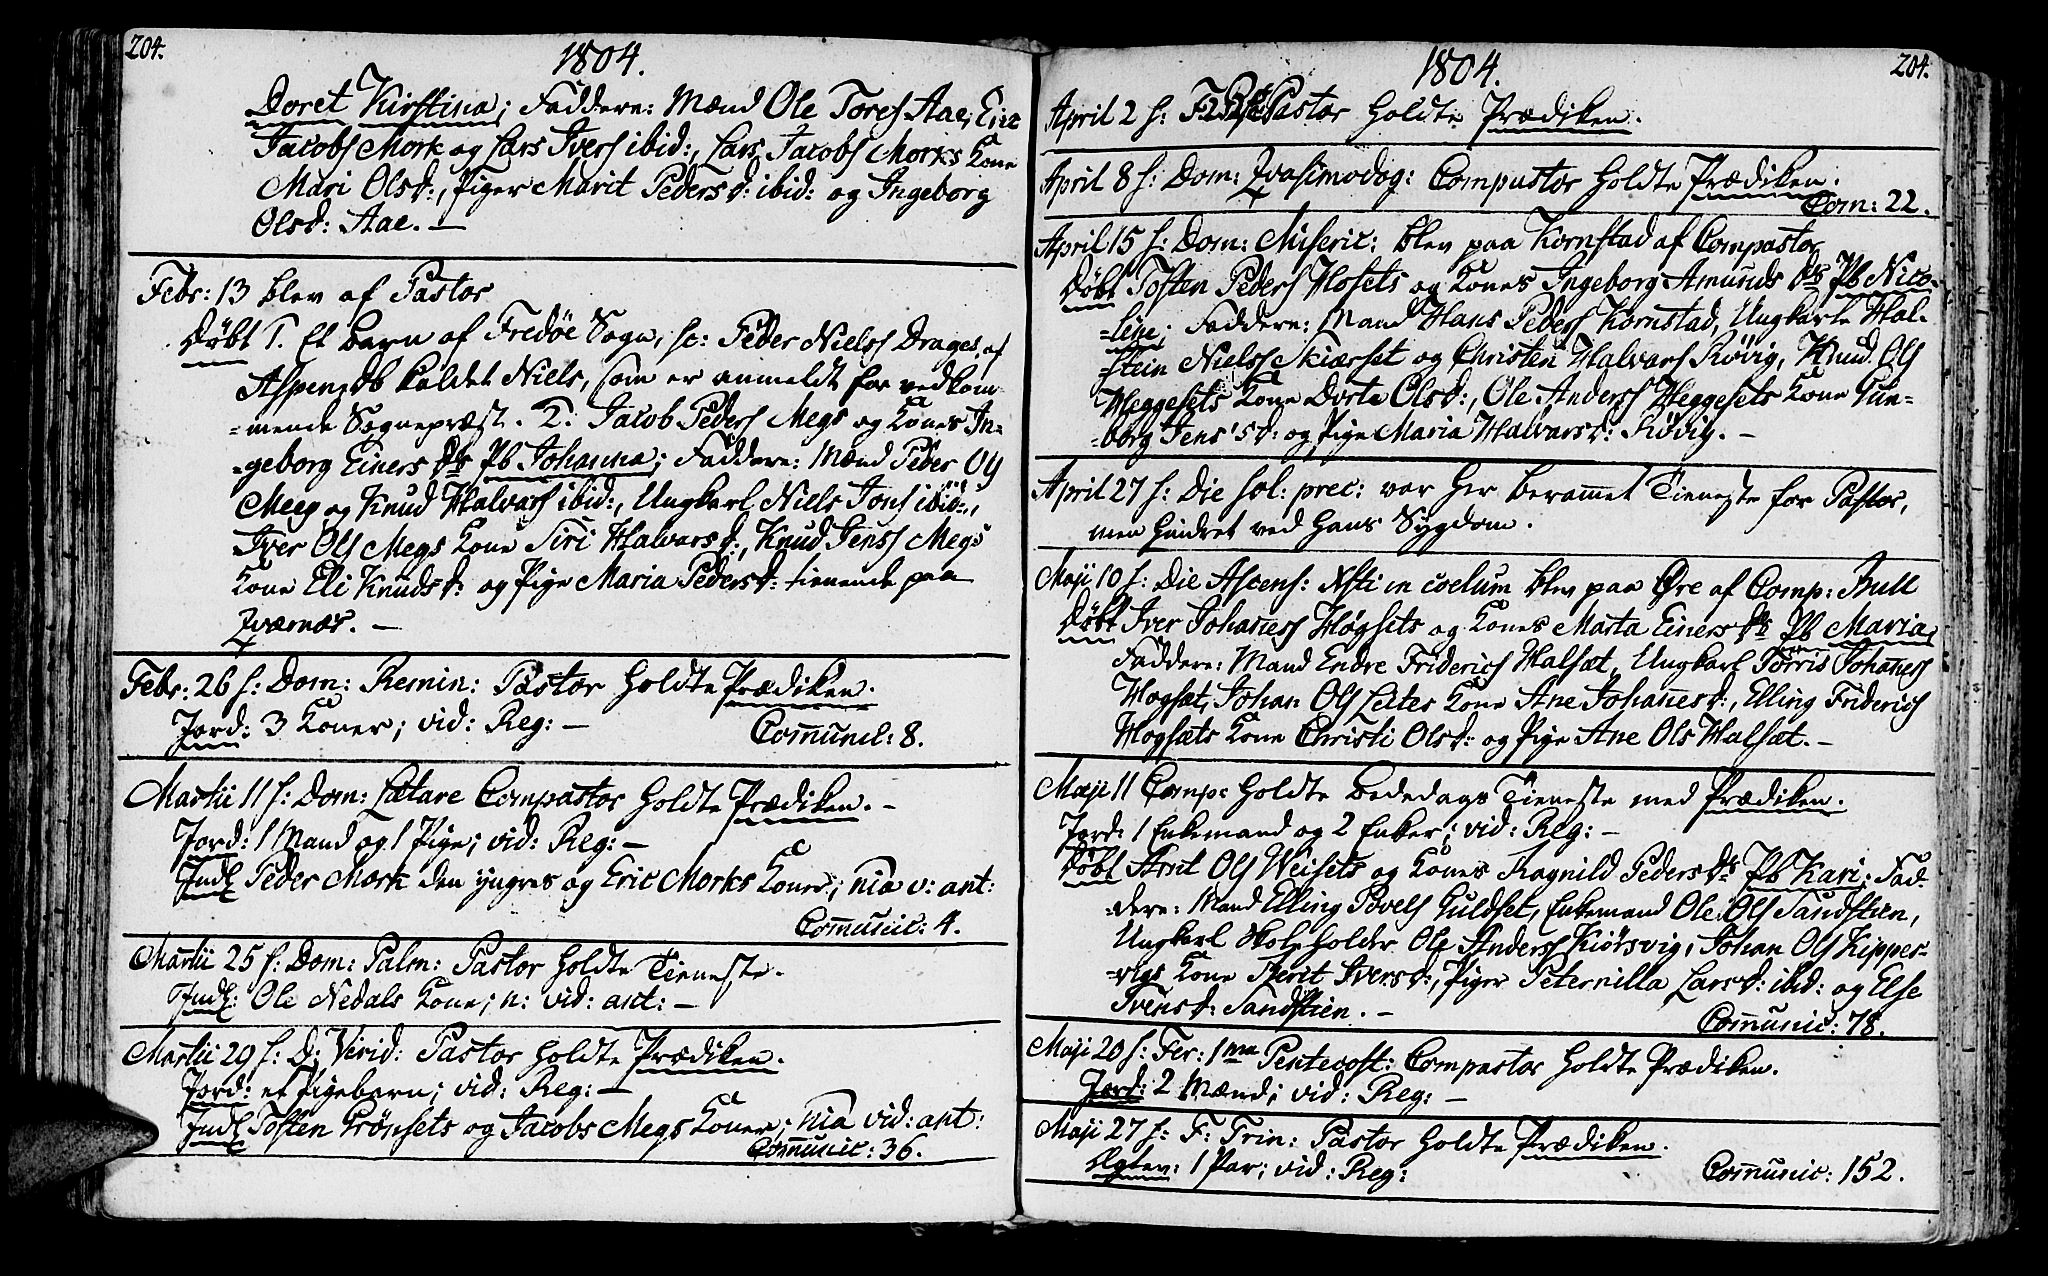 204.
1804.
Doret Kirstina; Faddere: Mænd Ole Tores Aae, Einer
Jacobs Mork og Lars Ivers ibid:, Lars Jacobs Morks Kone
Mari Olsd:, Piger Marit Pedersd: ibid: og Ingeborg
Olsd: Aae. —
Febr: 13 blev af Pastor
Døbt 1. Et barn af Fredøe Sogn, sc: Peder Nielss Drages af
Aspen, db kaldet Niels, som er anmeldt for vedkom-
-mende Sognepræst. 2. Jacob Peders Megs og Kones In-
-geborg Einers Dr Pb Johanna; Faddere: Mænd Peder Ols
Meeg og Knud Halvars ibid:, Ungkarl Niels Jons ibid:,
Iver Ols Megs Kone Siri Halvarsd:, Knud Jenss Megs
Kone Eli Knudsd: og Pige Maria Pedersd: tienende paa
Qværnæs. —
Febr: 26 s: Dom: Remin: Pastor holdte Prædiken.
Jord: 3 Koner; vid: Reg: —
Communi: 8.
Martii 11 s: Dom: Lætare Compastor holdte Prædiken. —
Jord: 1 Mand og 1 Pige; vid: Reg: —
Indl Peder Mork den yngres og Eric Morks Koner; nia v: ant:
Communic: 4.
Martii 25 s: Dom: Palm: Pastor holdte Tieneste.
Indl: Ole Nedals Kone; n: vid: ant: —
Martii 29 s: D: Virid: Pastor holdte Prædiken.
Jord: et Pigebarn; vid: Reg: —
Indl Tosten Grönsets og Jacobs Megs Koner; nia vid: ant:
Communic: 36.
204.
1804.
April 2 s: F. 2 Pastor holdte Prædiken.
April 8 s: Dom: Qvasimodog: Compastor holdte Prædiken.
Com: 22.
April 15 s: Dom: Miseric: blev paa Kornstad af Compastor
Døbt Tosten Peders Hosets og Kones Ingeborg Amunds Dr Pb Nico-
-line; Faddere: Mand Hans Peders Kornstad, Ungkarle Hal-
-stein Nielss Skiærset og Christen Halvars Røvig, Knud Ols
Heggesets Kone Dorte Olsd:, Ole Anderss Heggesets Kone Gun-
-borg Jens'sd: og Pige Maria Halvarsd: Røvig. —
April 27 s: Die sol: prec: var her beramet Tieneste for Pastor,
men hindret ved hans Sygdom.
Maji 10 s: Die Ascens: Xsti in coelum blev paa Øre af Comp: Bull
Døbt Iver Johanness Høgsets og Kones Marta Einers Dr Pb Maria;
Faddere: Mand Endre Friderics Halsæt, Ungkarl Torris Johanes
Hogsæt, Johan Ols Leites Kone Ane Johanesd:, Elling Friderics
Hogsæts Kone Christi Olsd: og Pige Ane Ols Halsæt. —
Maji 11 Comp: holdte Bededags Tieneste med Prædiken.
Jord: 1 Enkemand og 2 Enker; vid: Reg: —
Døbt Arnt Ols Weisets og Kones Ragnild Peders Dr Pb Kari; Fad-
-dere: Mand Elling Povels Guldset, Enkemand Ole Ols Sandstien,
Ungkarl Skoleholder Ole Anderss Kiörsvig, Johan Ols Kippers-
-vigs Kone Berit Iversd:, Piger Peternilla Larsd: ibid: og Else
Svensd: Sandstien. —
Communic: 78.
Maji 20 s: Fer: 1ma Pentecost: Compastor holdte Prædiken.
Jord: 2 Mænd; vid: Reg: —
Maji 27 s: F: Trin: Pastor holdte Prædiken.
Ægtev: 1 Par; vid: Reg:
Communic: 152.